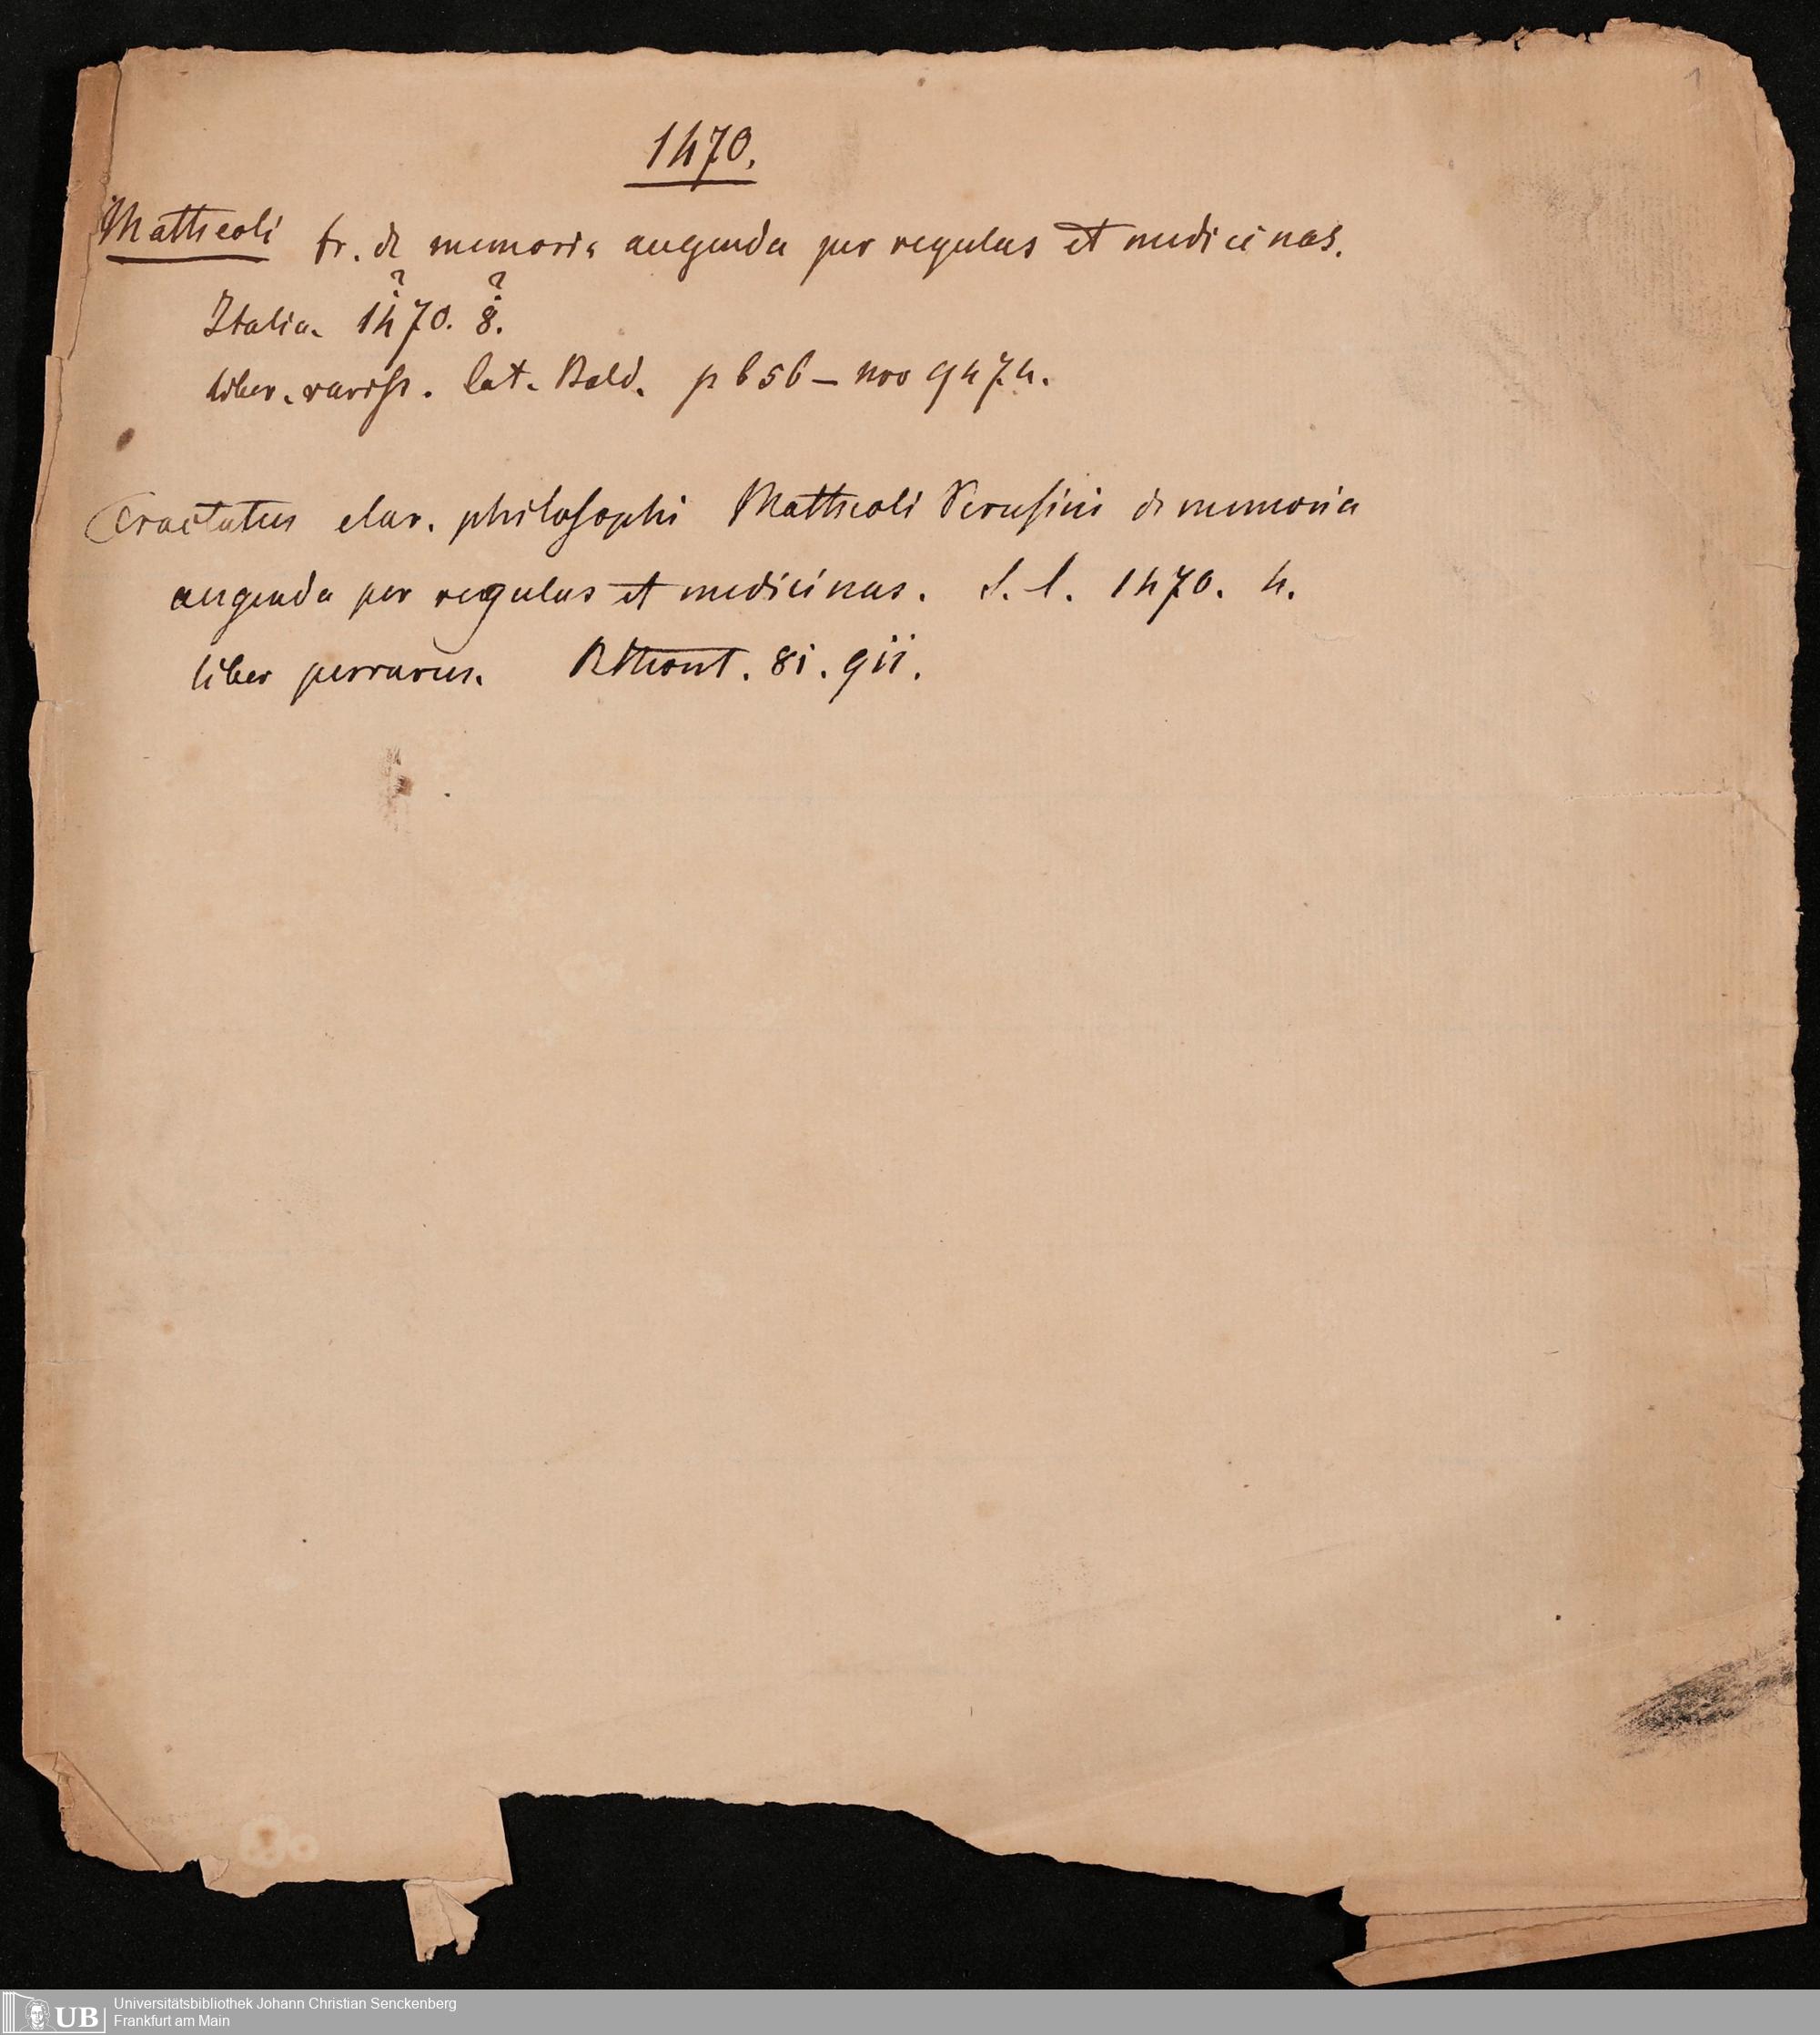 1
1470.
Mattheoli tr. de memoria augenda per regulas et medicinas.
? ?
Italia. 1470. 8.
liber. rariss. Cat. Bold. p 656 – nro 9474.
Tractatus clar. philosophi Mattheoli Perusini de memoria
augenda per regulas et medicinas. S. l. 1470. 4.
liber perrarus. 81. 911.
UB
Universitätsbibliothek Johann Christian Senckenberg
Frankfurt am Main